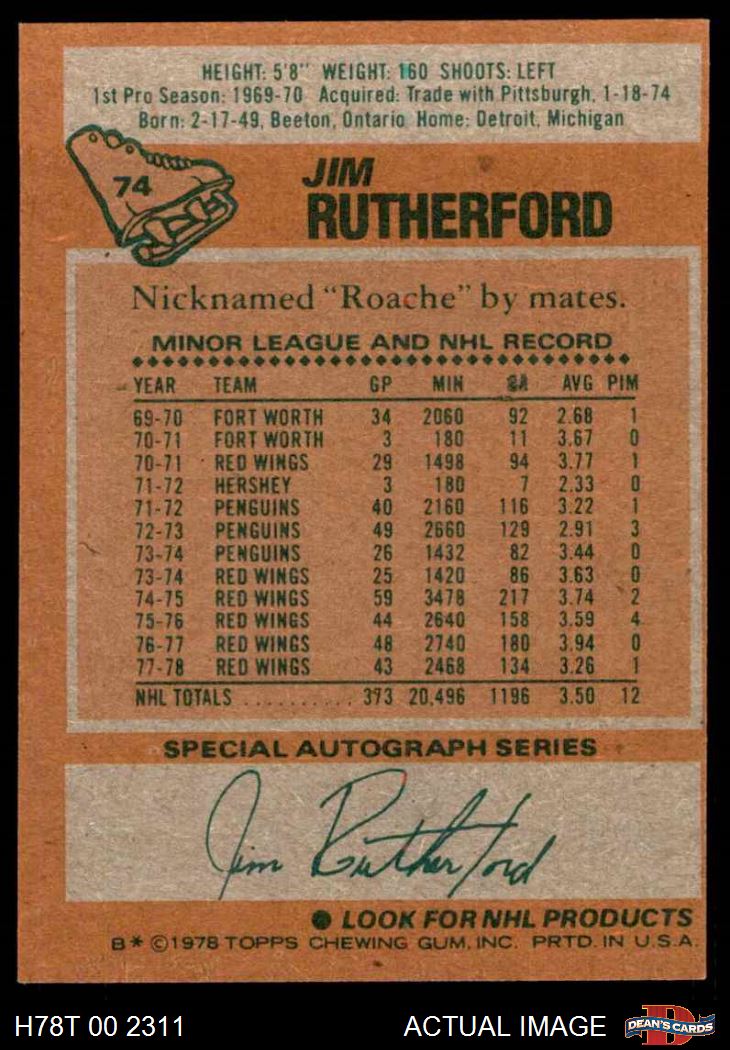 HEIGHT: 5'8" WEIGHT: 160 SHOOTS: LEFT
1st Pro Season: 1969-70 Acquired: Trade with Pittsburgh, 1-18-74
Born: 2-17-49, Beeton, Ontario Home: Detroit, Michigan
74
JIM
RUTHERFORD
Nicknamed "Roache" by mates.
MINOR LEAGUE AND NHL RECORD
YEAR TEAM GP MIN GA AVG PIM
69-70 FORT WORTH 34 2060 92 2.68 1
70-71 FORT WORTH 3 180 11 3.67 0
70-71 RED WINGS 29 1498 94 3.77 1
71-72 HERSHEY 3 180 7 2.33 0
71-72 PENGUINS 40 2160 116 3.22 1
72-73 PENGUINS 49 2660 129 2.91 3
73-74 PENGUINS 26 1432 82 3.44 0
73-74 RED WINGS 25 1420 86 3.63 0
74-75 RED WINGS 59 3478 217 3.74 2
75-76 RED WINGS 44 2640 158 3.59 4
76-77 RED WINGS 48 2740 180 3.94 0
77-78 RED WINGS 43 2468 134 3.26 1
NHL TOTALS .......... 373 20,496 1196 3.50 12
SPECIAL AUTOGRAPH SERIES
Jim Rutherford
● LOOK FOR NHL PRODUCTS
B* ©1978 TOPPS CHEWING GUM, INC. PRTD. IN U.S.A.
H78T 00 2311 ACTUAL IMAGE D DEAN'S CARDS